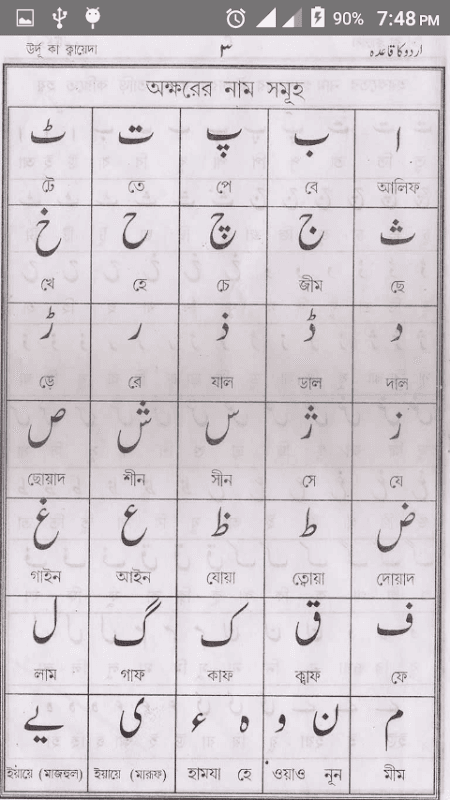 90% 7:48 PM
উর্দূ কা ক্বায়েদা ٣ اردو کا قاعدہ
অক্ষরের নাম সমূহ
ا ب پ ت ٹ
আলিফ্ বে পে তে টে
ث ج چ ح خ
ছে জীম চে হে খে
د ڈ ذ ر ڑ
দাল ডাল যাল রে ড়ে
ز ژ س ش ص
যে সে সীন শীন ছোয়াদ
ض ط ظ ع غ
দোয়াদ ত্বোয়া যোয়া আইন গাইন
ف ق ک گ ل
ফে ক্বাফ কাফ গাফ লাম
م ن و ہ ء ی یے
মীম নূন ওয়াও হে হামযা ইয়ায়ে (মারূফ) ইয়ায়ে (মাজহুল)